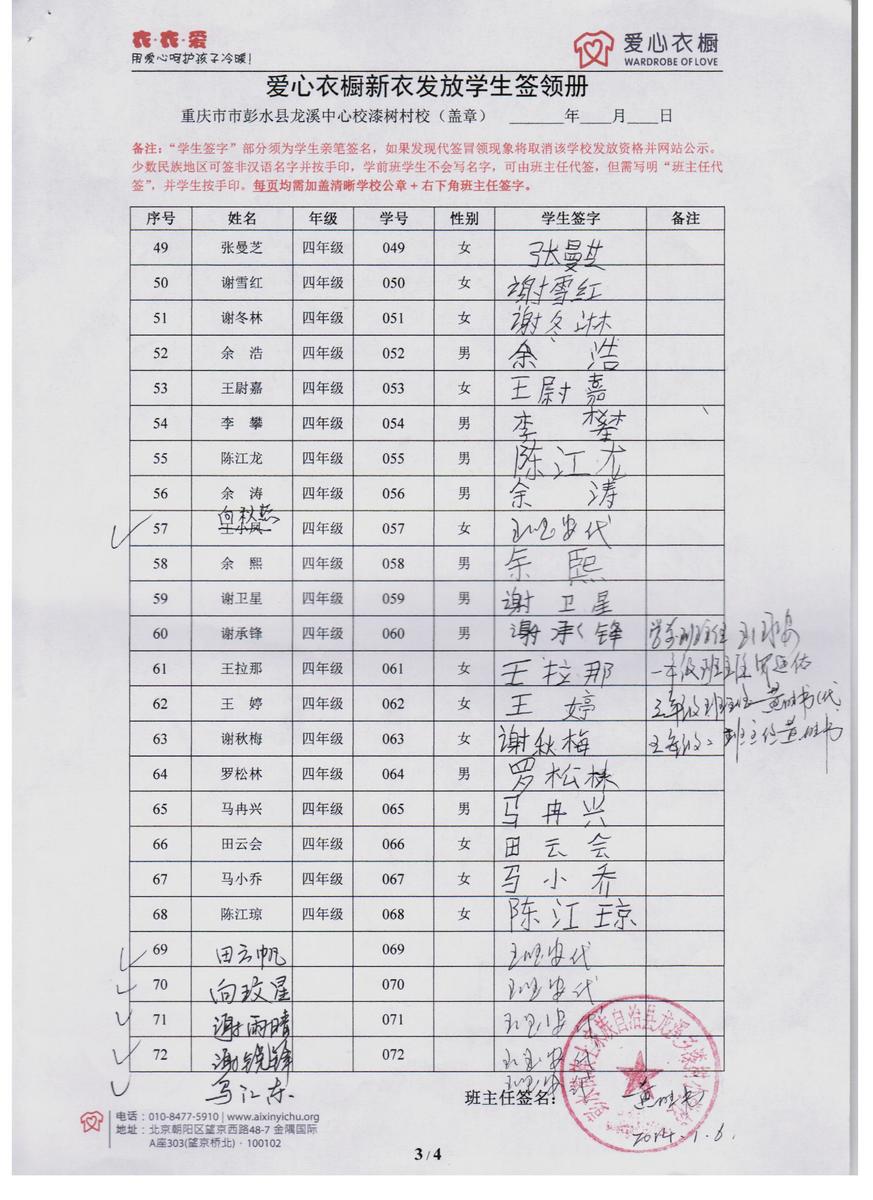 衣·衣·爱
用爱心呵护孩子冷暖!
爱心衣橱
WARDROBE OF LOVE
爱心衣橱新衣发放学生签领册
重庆市市彭水县龙溪中心校漆树村校（盖章） ______年____月____日
备注：“学生签字”部分须为学生亲笔签名，如果发现代签冒领现象将取消该学校发放资格并网站公示。
少数民族地区可签非汉语名字并按手印，学前班学生不会写名字，可由班主任代签，但需写明“班主任代
签”，并学生按手印。每页均需加盖清晰学校公章+右下角班主任签字。
序号 姓名 年级 学号 性别 学生签字 备注
49 张曼芝 四年级 049 女 张曼芝
50 谢雪红 四年级 050 女 谢雪红
51 谢冬林 四年级 051 女 谢冬淋
52 余 浩 四年级 052 男 余 浩
53 王尉嘉 四年级 053 女 王尉嘉
54 李 攀 四年级 054 男 李 攀
55 陈江龙 四年级 055 男 陈江龙
56 余 涛 四年级 056 男 余 涛
向秋燕
57 王小凤 四年级 057 女 代
58 余 熙 四年级 058 男 余 熙
59 谢卫星 四年级 059 男 谢卫星
60 谢承锋 四年级 060 男 谢承锋 学前班主任
61 王拉那 四年级 061 女 王拉那 一年级班主任
62 王 婷 四年级 062 女 王 婷 班主任黄明书(代
63 谢秋梅 四年级 063 女 谢秋梅 班主任黄明书
64 罗松林 四年级 064 男 罗松林
65 马冉兴 四年级 065 男 马冉兴
66 田云会 四年级 066 女 田云会
67 马小乔 四年级 067 女 马小乔
68 陈江琼 四年级 068 女 陈江琼
69 田云帆 069 代
70 向玟星 070 代
71 谢雨晴 071
72 谢锐锋 072
马江东
班主任签名： 黄明书
2014.1.6.
电话：010-8477-5910 | www.aixinyichu.org
地址：北京朝阳区望京西路48-7 金隅国际
A座303(望京桥北)·100102
3 / 4